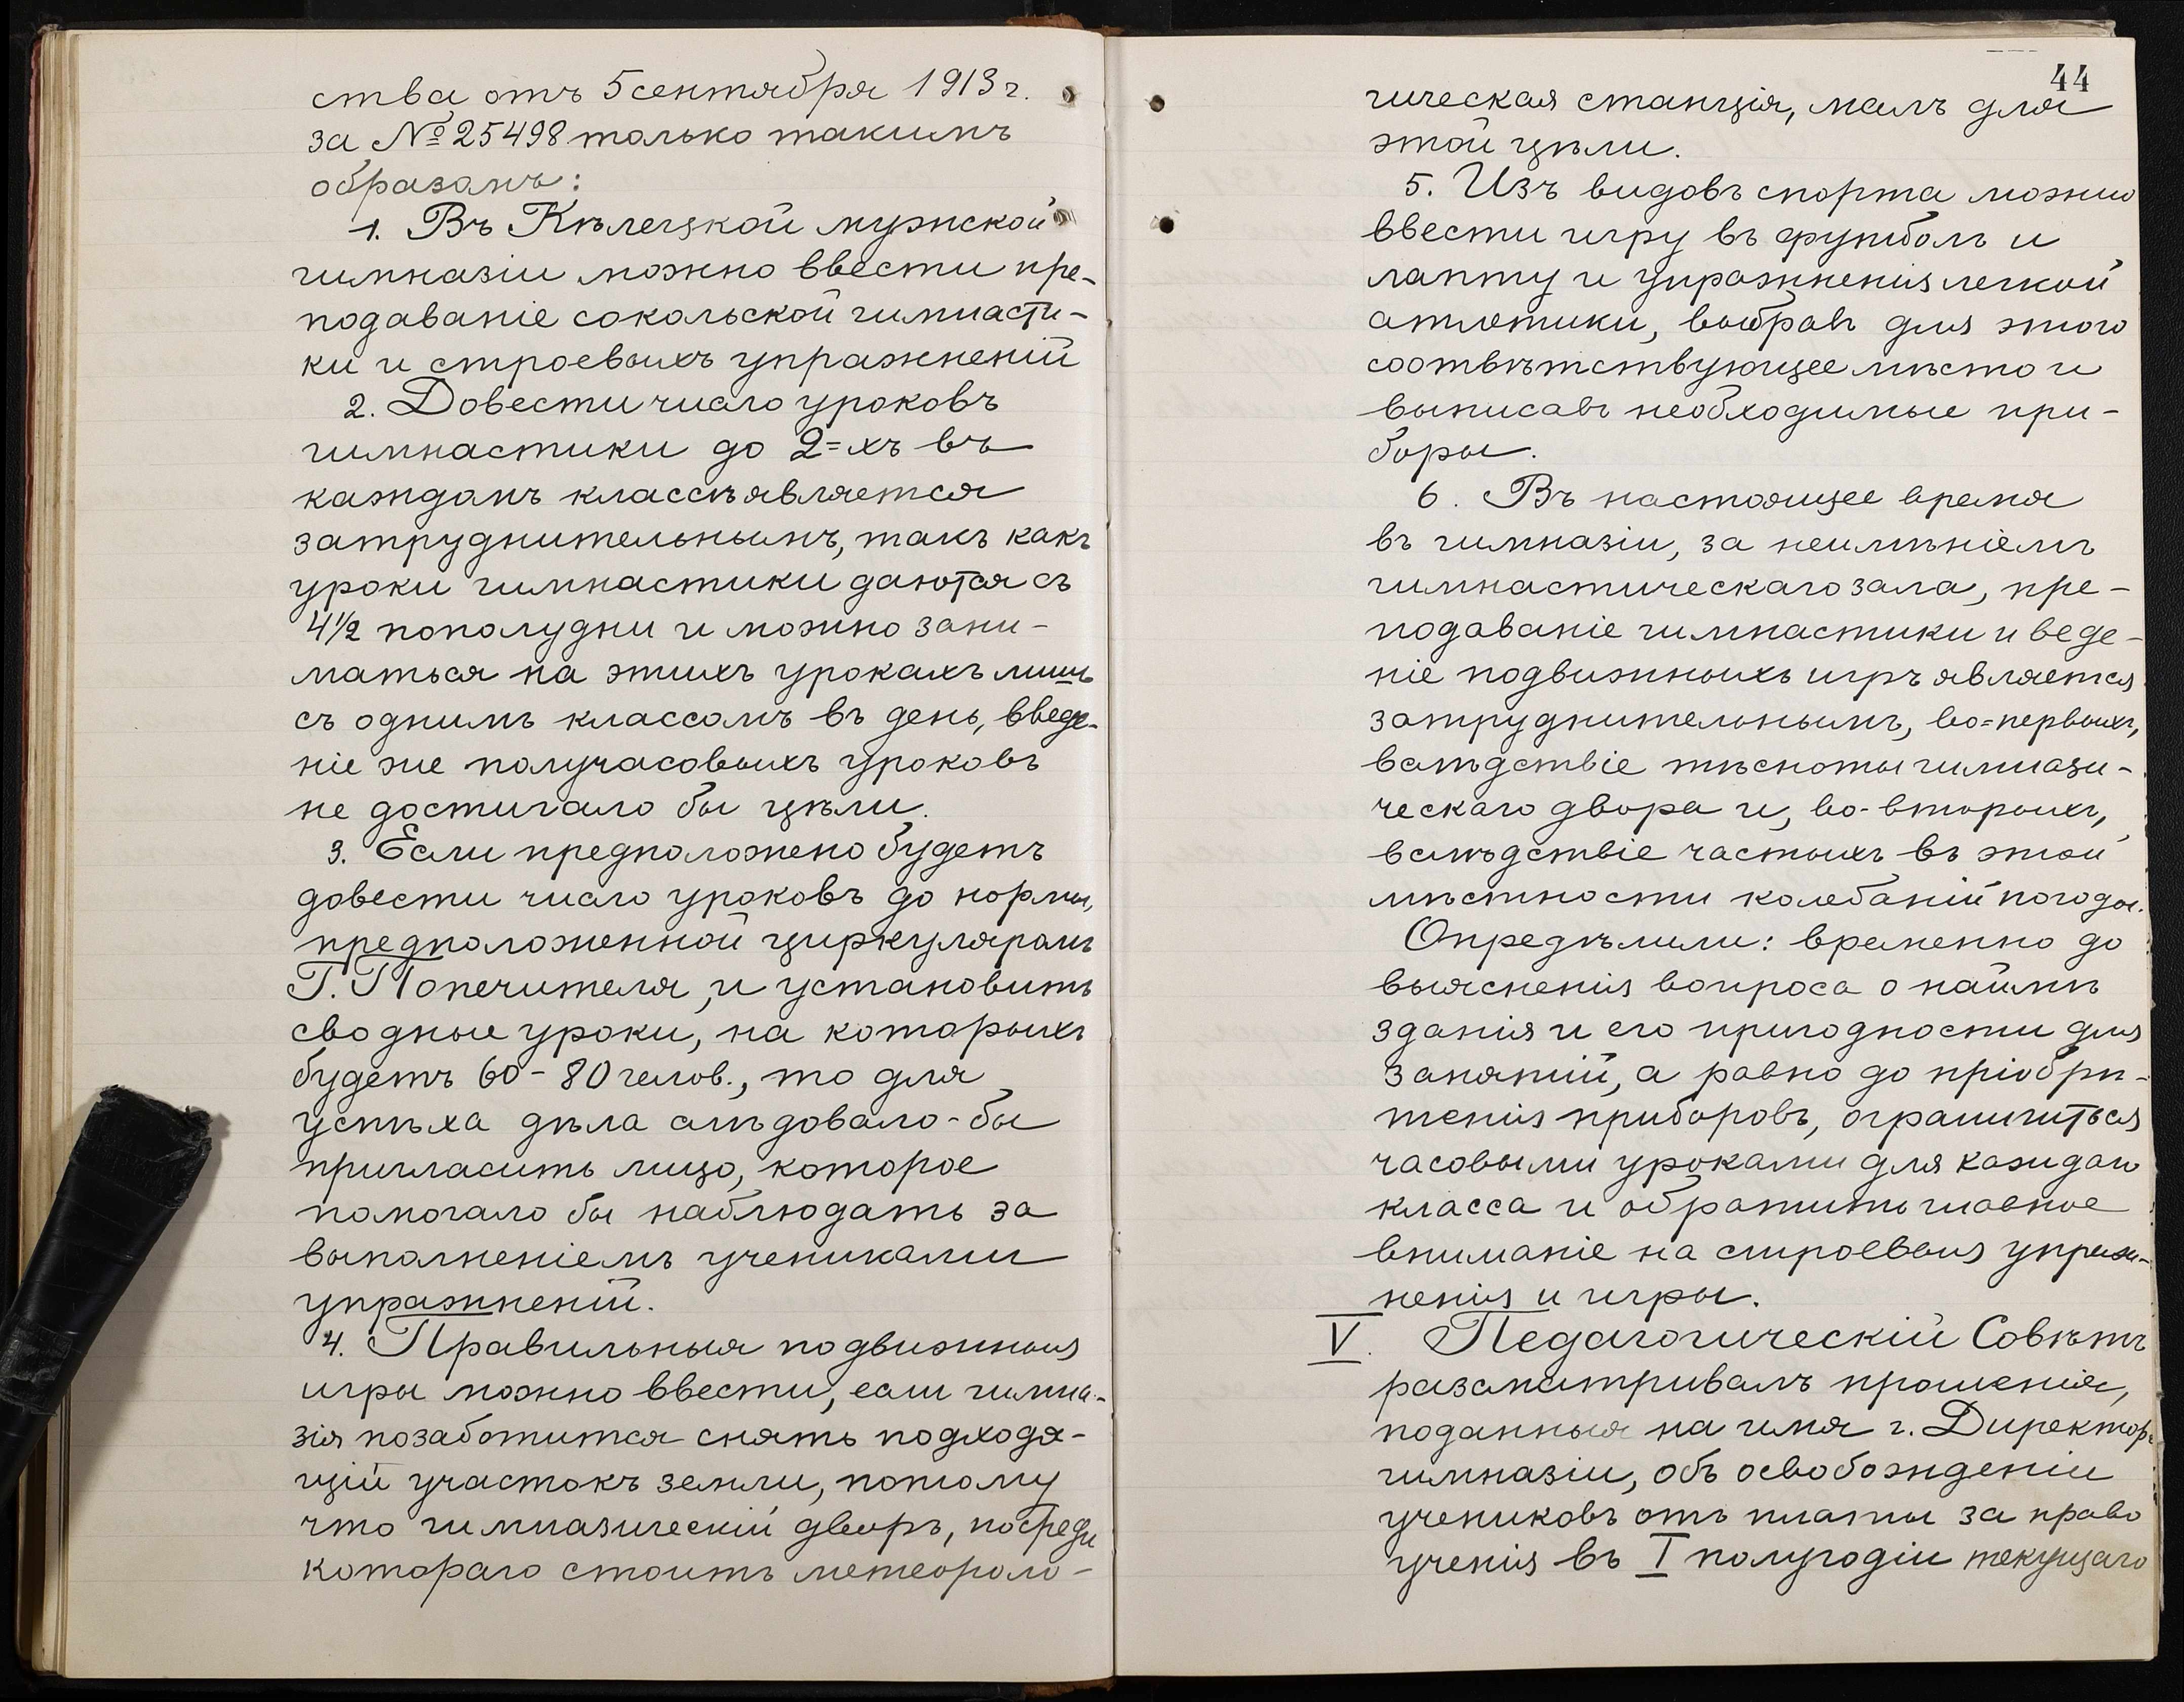 ства отъ 5 сентября 1913 г.
за № 25498 только такимъ
образомъ:
1. Въ Кѣлецкой мужской
гимназіи можно ввести пре-
подаваніе сокольской гимнасти-
ки и строевыхъ упражненій
2. Довести число уроковъ
гимнастики до 2=хъ въ
каждомъ классѣ является
затруднительнымъ, такъ какъ
уроки гимнастики даются съ
4½ пополудни и можно зани-
маться на этихъ урокахъ лишь
съ однимъ классомъ въ день, введе-
ніе же получасовыхъ уроковъ
не достигало бы цѣли.
3. Если предположено будетъ
довести число уроковъ до нормы,
предположенной циркуляромъ
Г. Попечителя, и установить
сводные уроки, на которыхъ
будетъ 60-80 челов., то для
успѣха дѣла слѣдовало-бы
пригласить лицо, которое
помогало бы наблюдать за
выполненіемъ учениками
упражненій.
4. Правильныя подвижныя
игры можно ввести, если гимна-
зія позаботится снять подходя-
щій участокъ земли, потому
что гимназическій дворъ, посреди
котораго стоитъ метеороло-
44
гическая станція, малъ для
этой цѣли.
5. Изъ видовъ спорта можно
ввести игру въ футболъ и
лапту и упражненія легкой
атлетики, выбравъ для этого
соотвѣтствующее мѣсто и
выписавъ необходимые при-
боры.
6. Въ настоящее время
въ гимназіи, за неимѣніемъ
гимнастическаго зала, пре-
подаваніе гимнастики и веде-
ніе подвижныхъ игръ является
затруднительнымъ, во=первыхъ,
вслѣдствіе тѣсноты гимнази-
ческаго двора и, во-вторыхъ,
вслѣдствіе частыхъ въ этой
мѣстности колебаній погоды.
Опредѣлили: временно до
выясненія вопроса о наймѣ
зданія и его пригодности для
занятій, а равно до пріобрѣ-
тенія приборовъ, ограничиться
часовыми уроками для каждаго
класса и обратить главное
вниманіе на строевыя упраж-
ненія и игры.
V. Педагогическій Совѣтъ
разсматривалъ прошенія,
поданныя на имя г. Директора
гимназіи, объ освобожденіи
учениковъ отъ платы за право
ученія въ I полугодіи текущаго